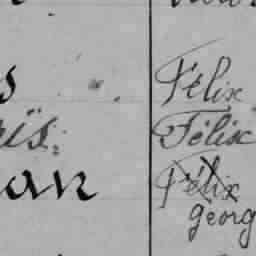 s Félix
ris. Félix
an Félix
georg